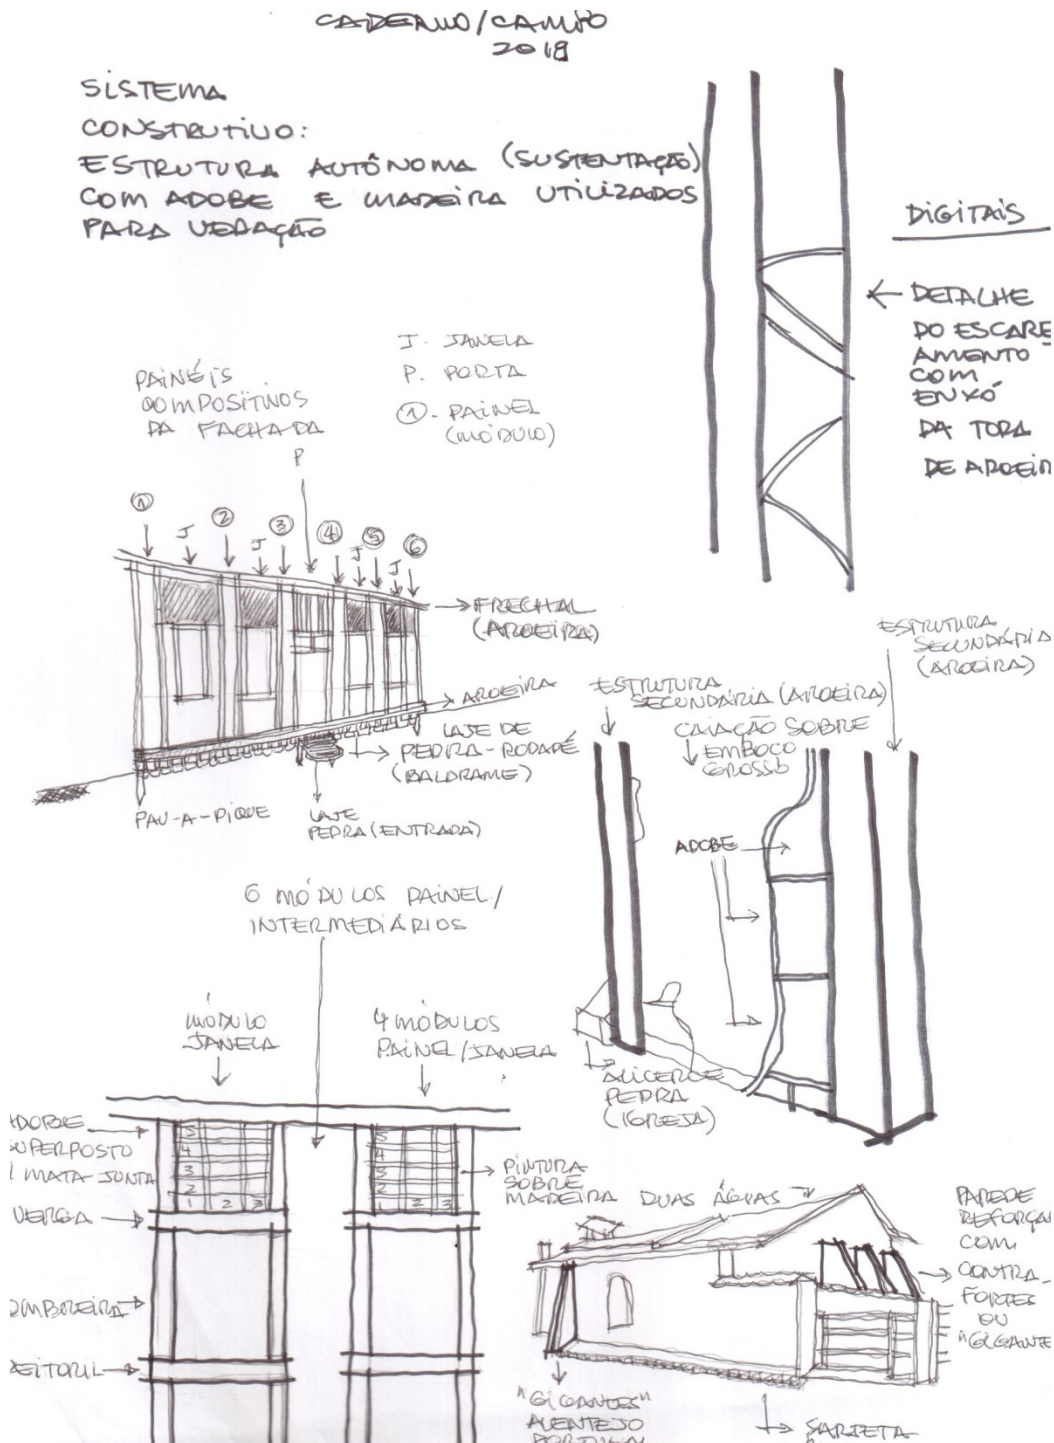 CADERNO/CAMPO
2018
SISTEMA
CONSTRUTIVO:
ESTRUTURA AUTÔNOMA (SUSTENTAÇÃO)
COM ADOBE E MADEIRA UTILIZADOS
PARA VEDAÇÃO
DIGITAIS
← DETALHE
DO ESCARE
AMENTO
COM
ENXÓ
DA TORA
DE AROEIR
J. JANELA
P. PORTA
① - PAINEL
(MÓDULO)
PAINÉIS
COMPOSITIVOS
DA FACHADA
P
① J ② J ③ ④ J ⑤ J ⑥
FRECHAL
(AROEIRA)
AROEIRA
LAJE DE
PEDRA-RODAPÉ
(BALDRAME)
PAU-A-PIQUE
LAJE
PEDRA (ENTRADA)
ESTRUTURA
SECUNDÁRIA
(AROEIRA)
ESTRUTURA
SECUNDÁRIA (AROEIRA)
CAIAÇÃO SOBRE
EMBOÇO
GROSSO
ADOBE
ALICERCE
PEDRA
(IGREJA)
6 MÓDULOS PAINEL/
INTERMEDIÁRIOS
MÓDULO
JANELA
4 MÓDULOS
PAINEL/JANELA
ADOBE
SUPERPOSTO
MATA-JUNTA
VERGA
OMBREIRA
PEITORIL
5
4
3
2
1 2 3
5
4
3
2
1 2 3
PINTURA
SOBRE
MADEIRA
DUAS ÁGUAS
PAREDE
REFORÇA
COM
CONTRA-
FORTES
OU
"GIGANTE
"GIGANTES"
ALENTEJO
PORTUGAL
SARJETA